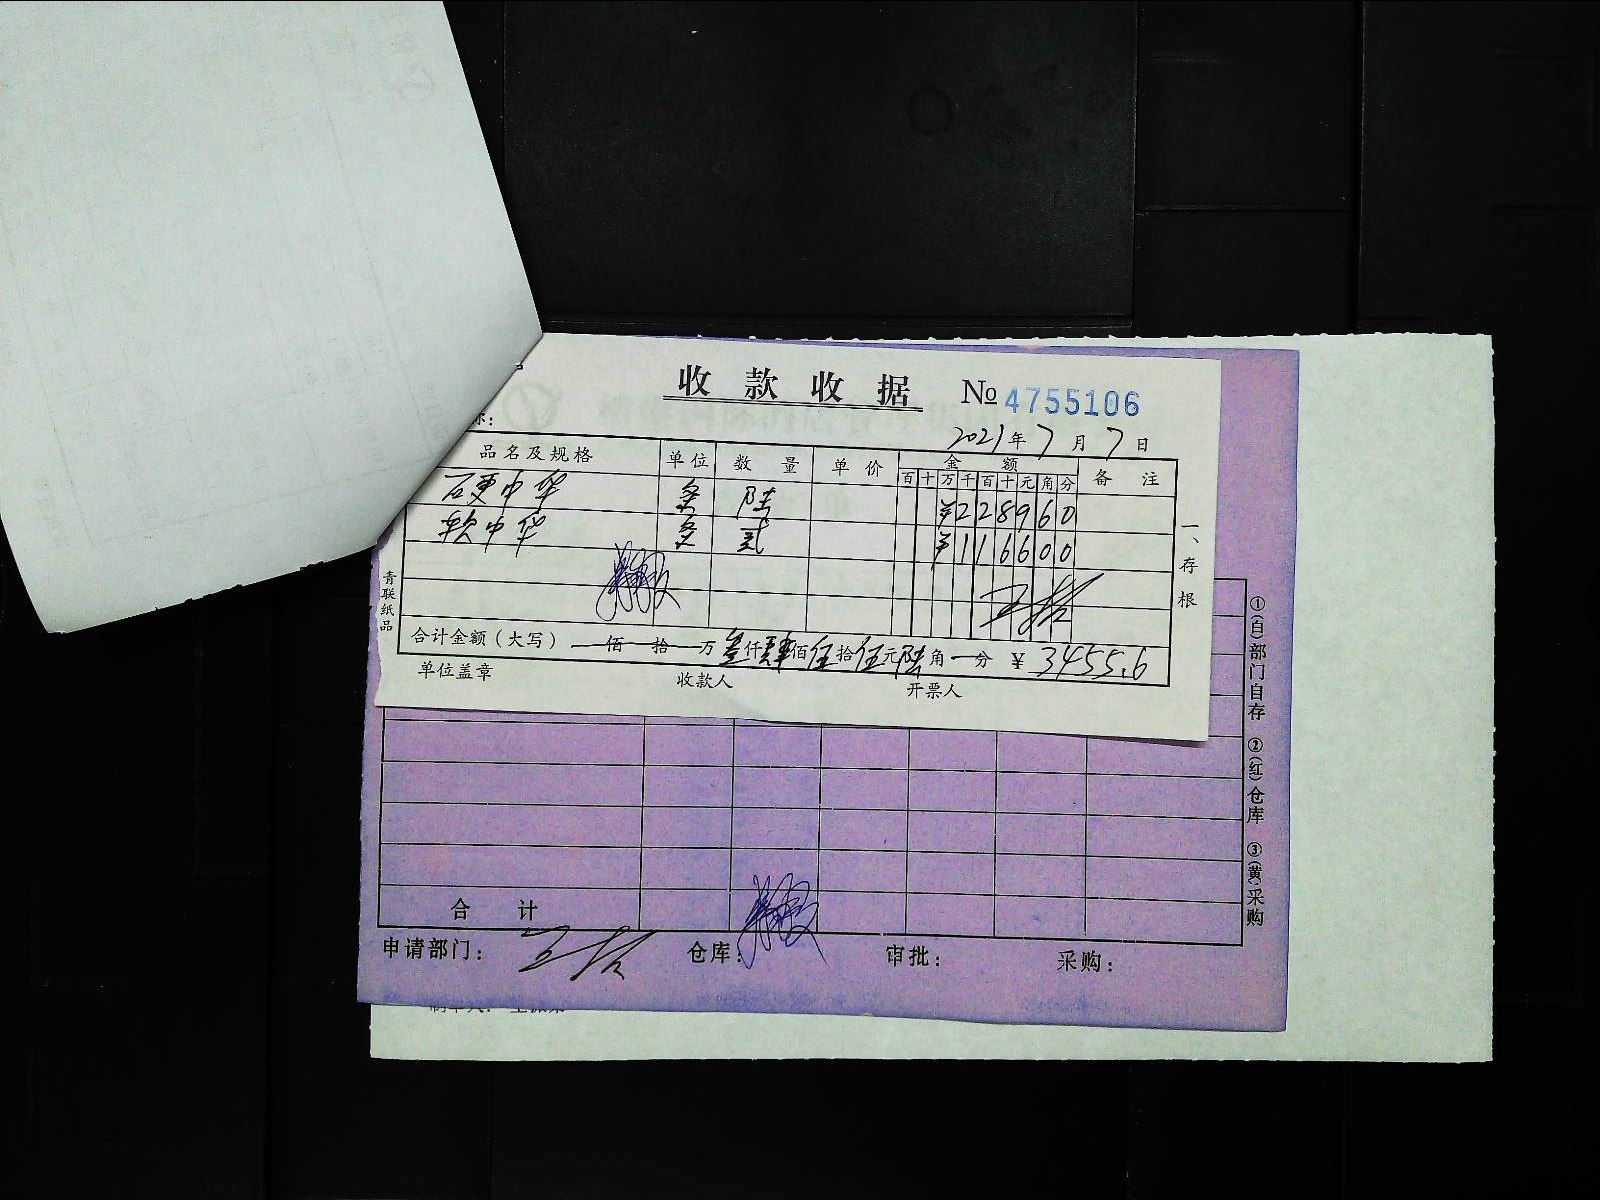 收款收据 № 4755106
称:
2021年7月7日
品名及规格 单位 数量 单价 金额 备注
百十万千百十元角分
硬中华 条 陆 ¥228960
软中华 条 贰 ¥116600
合计金额（大写） 佰 拾 万叁仟肆佰伍拾伍元陆角 分 ¥ 3455.6
单位盖章 收款人 开票人
一、存根
青联纸品
合计
申请部门: 仓库: 审批: 采购:
①(白)部门自存 ②(红)仓库 ③(黄)采购